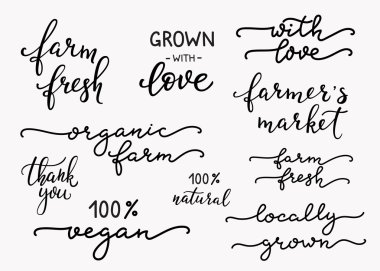 farm
fresh
GROWN
-WITH-
love
with
love
farmer's
market
organic
farm
thank
you
100%
natural
farm
fresh
100%
vegan
locally
grown